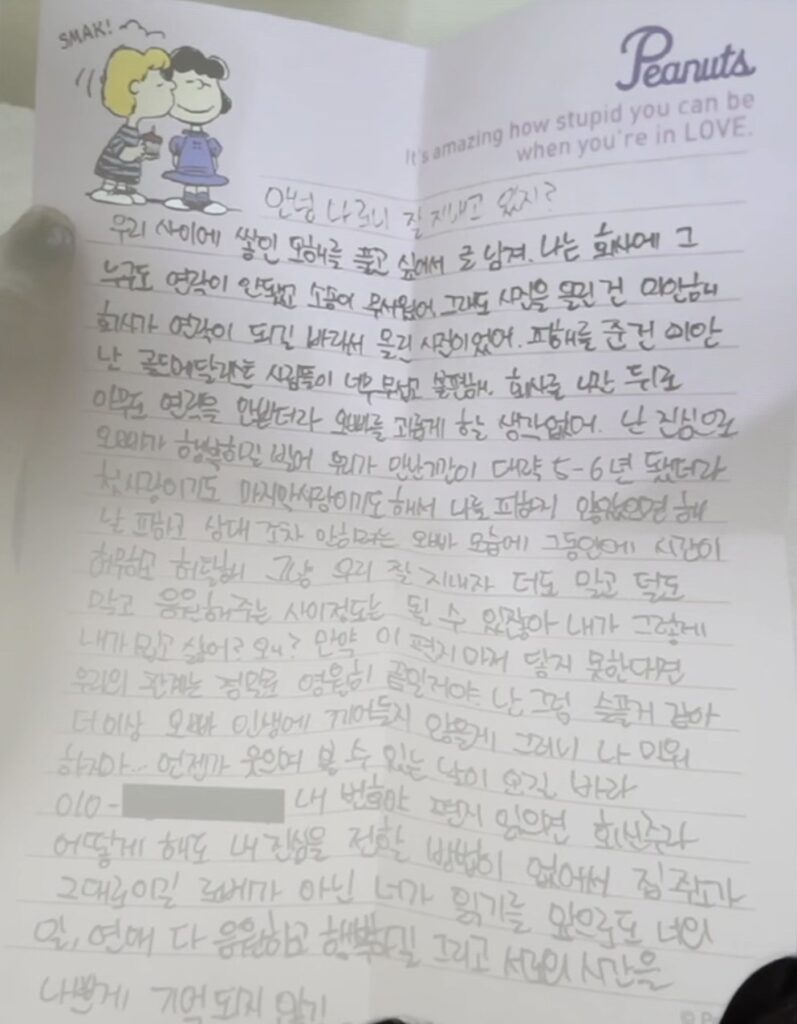 SMAK!
Peanuts
It's amazing how stupid you can be
when you're in LOVE.
안녕 나 잘 지내고 있지?
우리 사이에 쌓인 오해를 풀고 싶어서 글 남겨. 나는 회사에 그
누구도 연락이 안됐고 소송이 무서웠어 그래도 사진을 올린 건 미안해
회사가 연락이 되길 바라서 올린 사진이었어. 피해를 준건 미안
난 골드메달리스트 사람들이 너무 무섭고 불편해. 회사를 나간 뒤로
아무도 연락을 안받더라 오빠를 괴롭게 할 생각없어. 난 진심으로
오빠가 행복하길 빌어 우리가 만난기간이 대략 5-6년 됐더라
첫사랑이기도 마지막사랑이기도 해서 나를 피하지 않았으면 해
난 피하고 상대 조차 안하려는 오빠 모습에 그동안에 시간이
허무하고 허탈해 그냥 우리 잘 지내자 더도 말고 덜도
말고 응원해주는 사이정도는 될 수 있잖아 내가 그렇게
내가 밉고 싫어? 왜? 만약 이 편지마저 닿지 못한다면
우리의 관계는 정말로 영원히 끝일거야. 난 그럼 슬플거 같아
더이상 오빠 인생에 끼어들지 않을게 그러니 나 미워
하지마.. 언젠가 웃으며 볼 수 있는 날이 오길 바라
010- 내 번호야 편지 읽으면 회신주라
어떻게 해도 내 진심을 전할 방법이 없어서 집 주소가
그대로이길 로베가 아닌 너가 읽기를 앞으로도 너의
일, 연애 다 응원하고 행복하길 그리고 서로의 시간을
나쁘게 기억 되지 않기